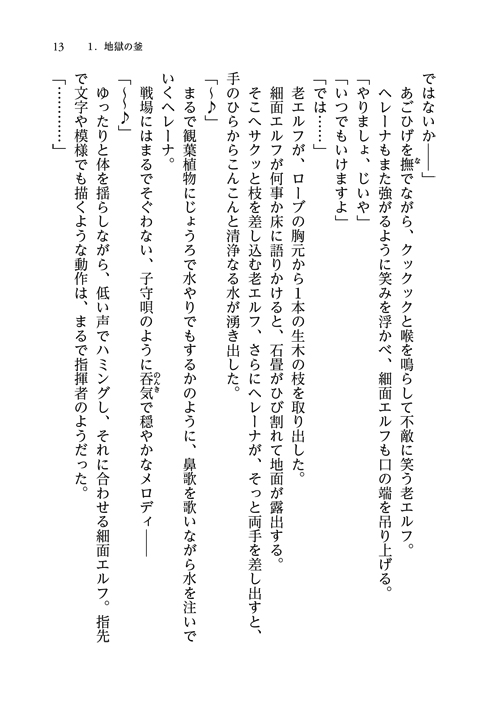 13　1．地獄の釜
ではないか――」
　あごひげを撫でながら、クックックと喉を鳴らして不敵に笑う老エルフ。
　ヘレーナもまた強がるように笑みを浮かべ、細面エルフも口の端を吊り上げる。
「やりましょ、じいや」
「いつでもいけますよ」
「では……」
　老エルフが、ローブの胸元から1本の生木の枝を取り出した。
　細面エルフが何事か床に語りかけると、石畳がひび割れて地面が露出する。
　そこへサクッと枝を差し込む老エルフ、さらにヘレーナが、そっと両手を差し出すと、
手のひらからこんこんと清浄なる水が湧き出した。
「～♪」
　まるで観葉植物にじょうろで水やりでもするかのように、鼻歌を歌いながら水を注いで
いくヘレーナ。
　戦場にはまるでそぐわない、子守唄のように呑気で穏やかなメロディ――
「～～♪」
　ゆったりと体を揺らしながら、低い声でハミングし、それに合わせる細面エルフ。指先
で文字や模様でも描くような動作は、まるで指揮者のようだった。
「…………」